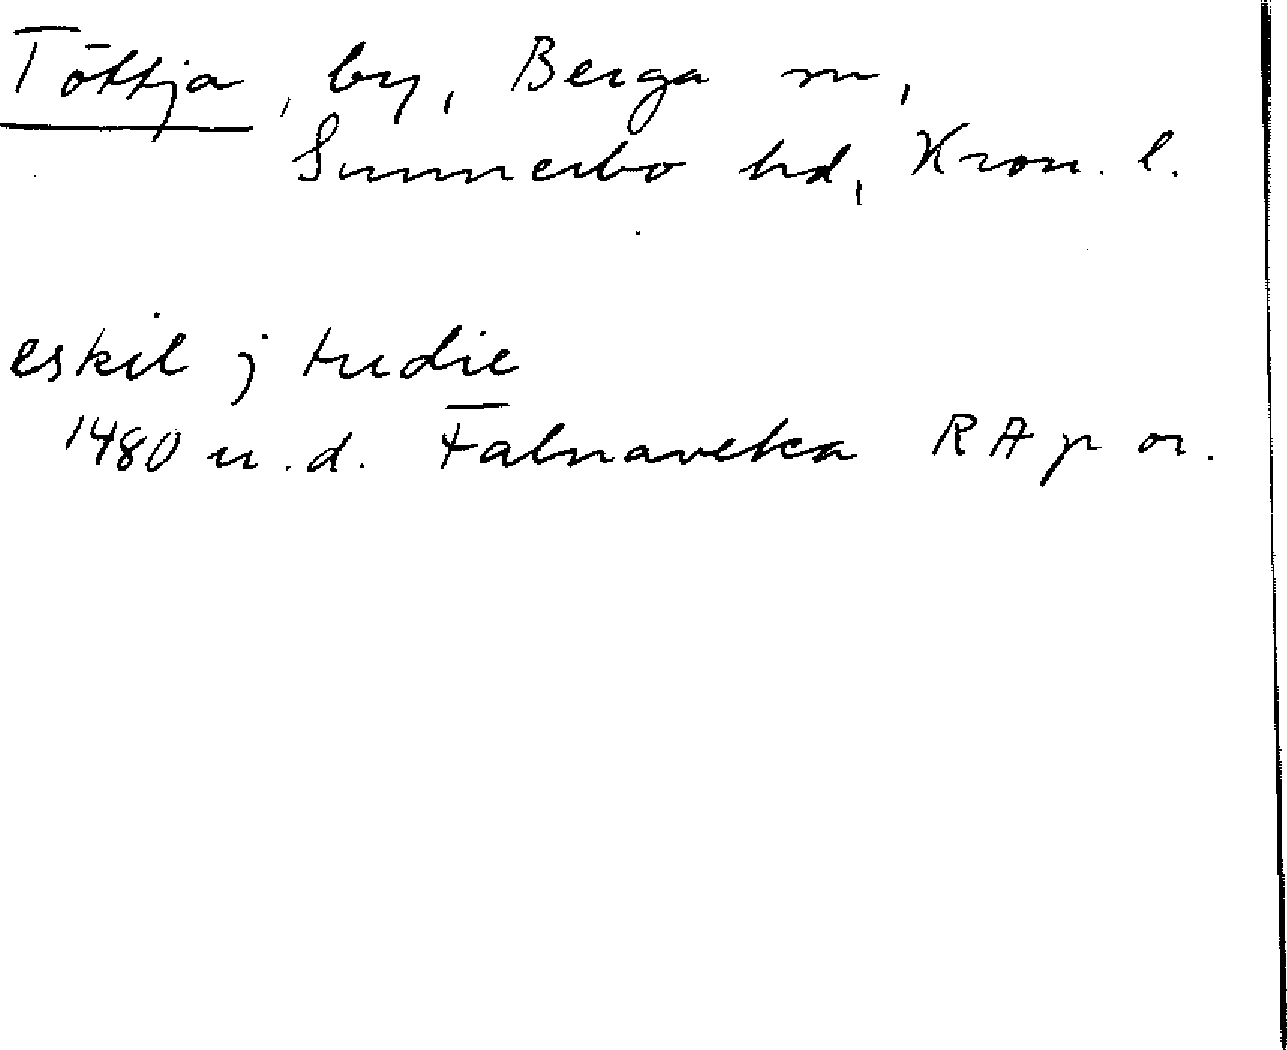 Töttja, by, Berga sn,
Sunnerbo hd, Kron. l.
eskil j tudie
1480 u.d. Falnaveka RA p or.